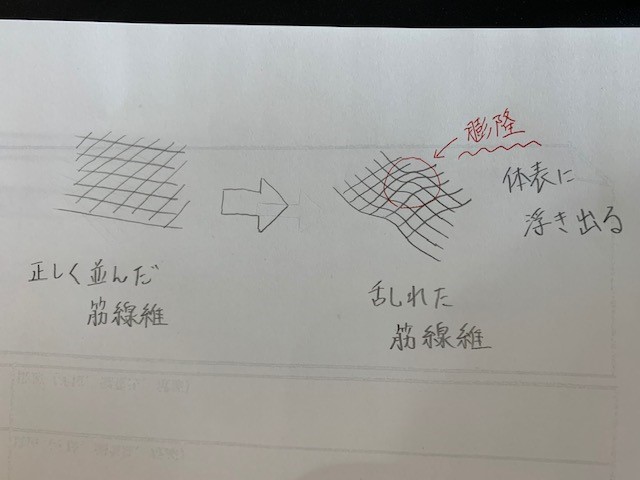 膨隆
体表に
浮き出る
正しく並んだ
筋線維
乱れた
筋線維